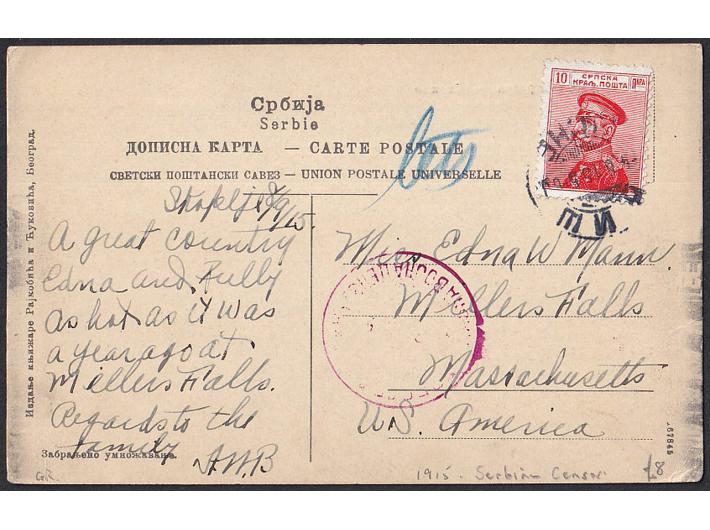 Србија
Serbie
ДОПИСНА КАРТА — CARTE POSTALE
СВЕТСКИ ПОШТАНСКИ САВЕЗ – UNION POSTALE UNIVERSELLE
10 СРПСКА КРАЉ. ПОШТА ПАРА
НИШ
9/9/15.
A great country
Edna and Fully
as hot as it was
a year ago at
Millers Falls.
Regards to the
family
A.W.B
Miss Edna W Mann.
Millers Falls
Massachusetts
U.S. America
Издање књижаре Рајковића и Ћуковића, Београд.
Забрањено умножавање.
67845
G.R.
1915 - Serbian Censor
£8